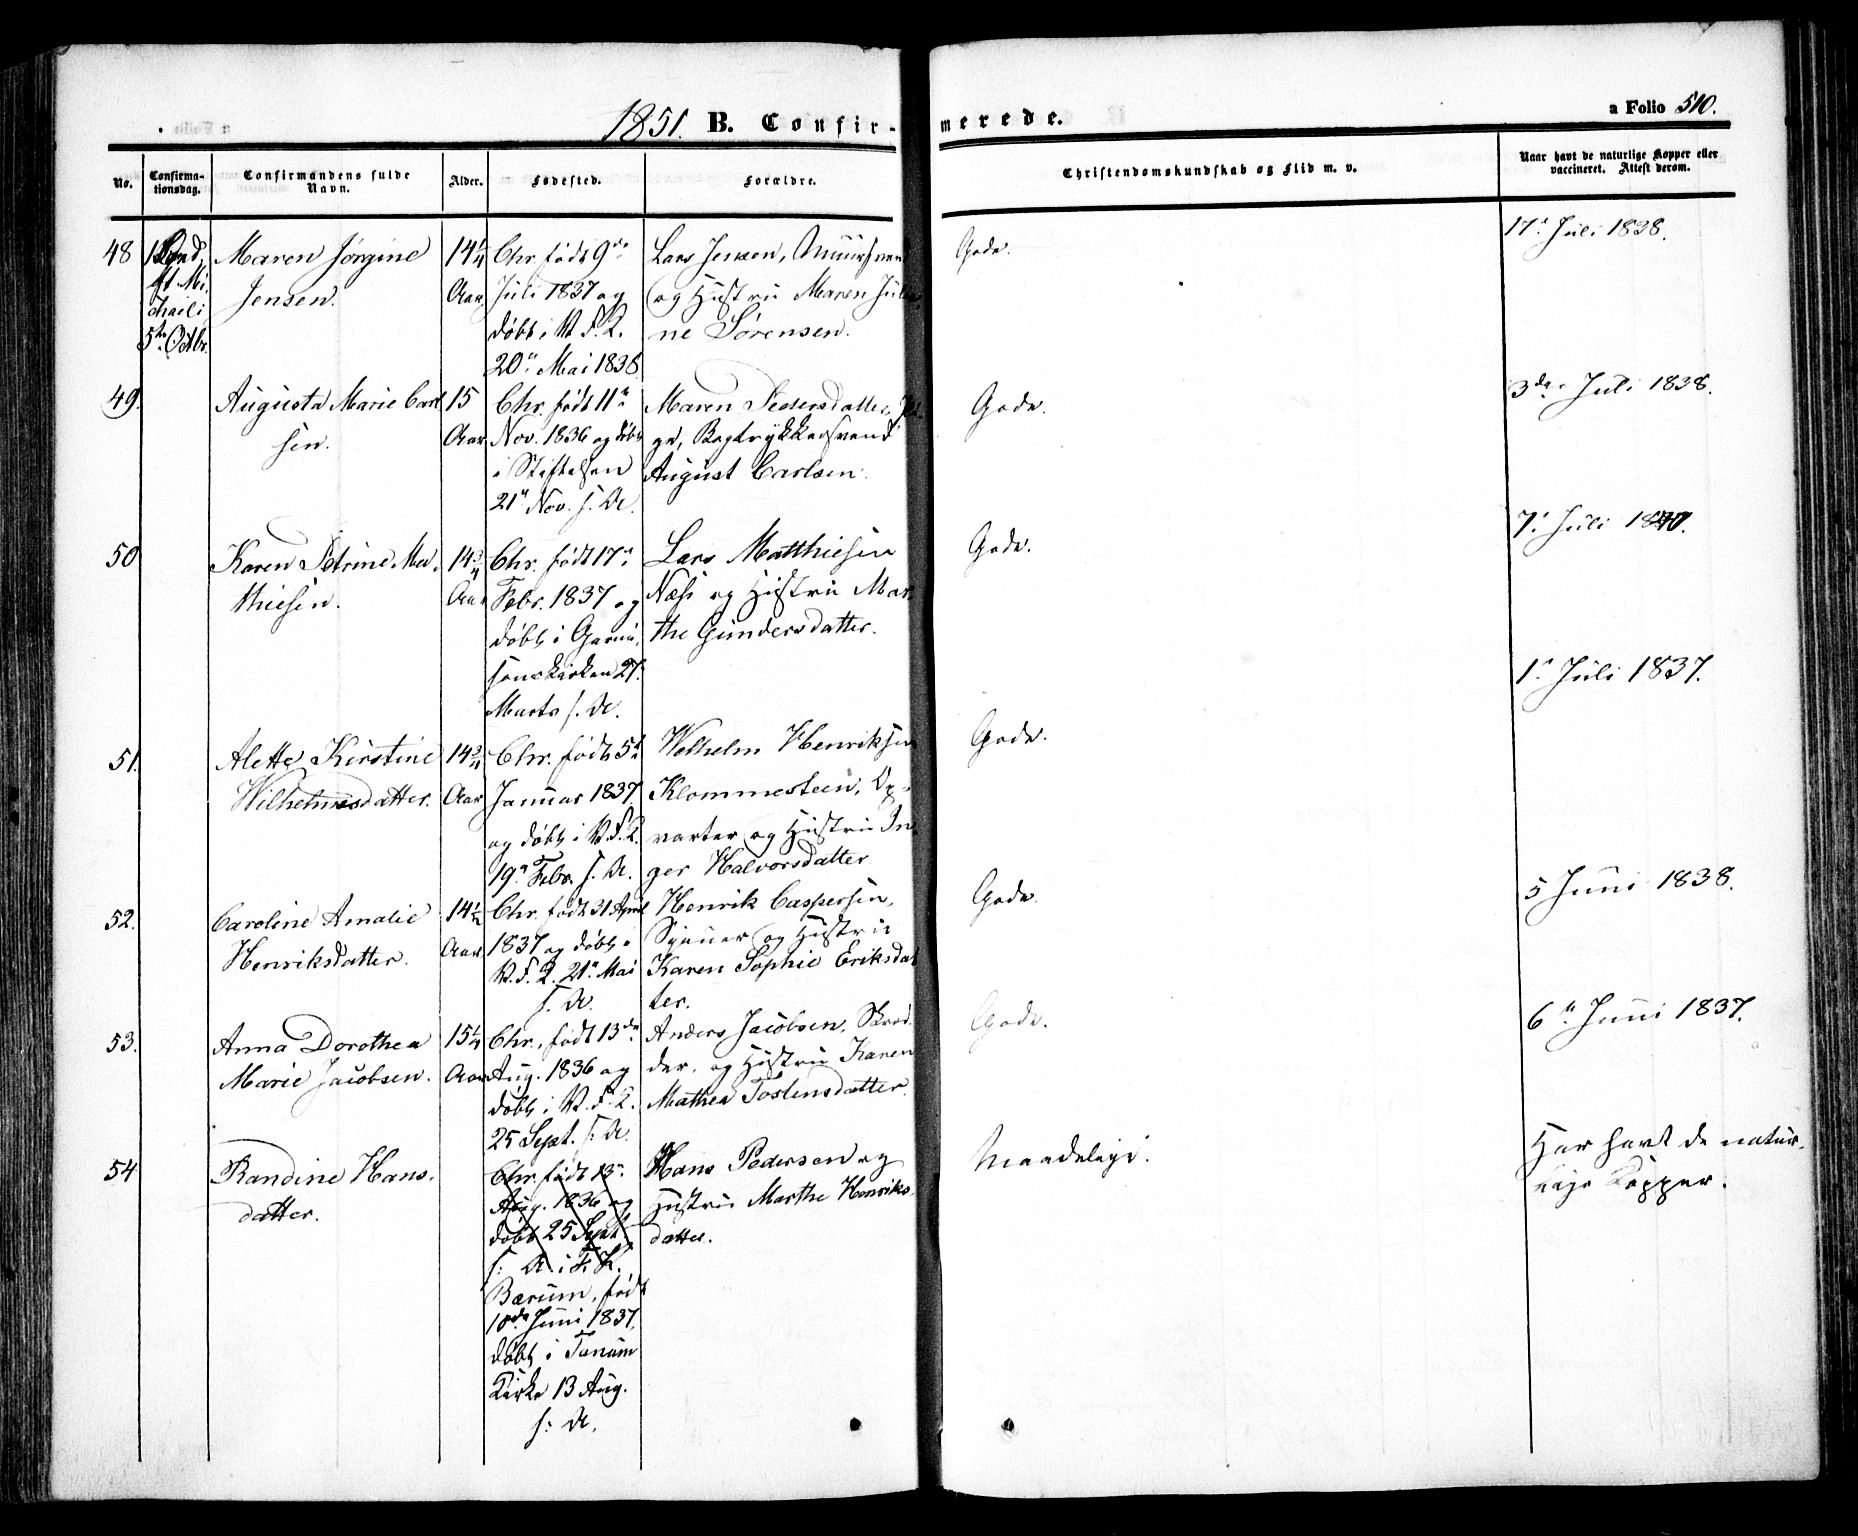 1851. B. Confirmerede.
a Folio 510.
No.
Confirma-
tionsdag.
Confirmandens fulde
Navn.
Alder.
Fødested.
Forældre.
Christendomskundskab og Flid m. v.
Naar havt de naturlige Kopper eller
vaccineret. Attest derom.
48
ft. Mi-
chaeli
5te Octbr.
Maren Jørgine
Jensen.
14 1/4
Aar
Chr. født 9de
Juli 1837 og
døbt i V. F. K.
20de Mai 1838
Lars Jensen, Muursvend
og Hustru Maren Juli
ne Sørensen.
Gode.
17de Juli 1838.
49.
Augusta Marie Carl
sen.
15
Aar
Chr. født 11te
Nov. 1836 og døbt
i Stiftelsen
21de Nov. s. A.
Maren Pedersdatter, Pi-
ge, Bogtrykkersvend
August Carlsen.
Gode.
3die Juli 1838.
50
Karen Petrine Ma-
thiesen.
14 3/4
Aar
Chr. født 17de
Febr. 1837 og
døbt i Garni-
sonskirken 27.
Marts s. A.
Lars Matthiesen
Næss og Hustru Mar-
the Gundersdatter.
Gode.
7. Juli 1840.
51.
Alette Kirstine
Wilhelmsdatter.
14 3/4
Aar
Chr. født 5te
Januar 1837
og døbt i V. F. K.
19de Febr. s. A.
Welhelm Henriksen
Klommesteen, Op-
varter og Hustru In-
ger Halvorsdatter
Gode.
1ste Juli 1837.
52.
Caroline Amalie
Henriksdatter.
14 1/2
Aar
Chr. født 31 April
1837 og døbt i
V. F. K. 21de Mai
s. A.
Henrik Caspersen,
og Hustru
Karen Sophie Eriksdat
ter.
Gode.
5 Juni 1838.
53.
Anna Dorothea
Marie Jacobsen.
15 1/4
Aar
Chr. født 13de
Aug. 1836 og
døbt i V. F. K.
25 Sept. s. A.
Anders Jacobsen, Skræd-
der, og Hustru Karen
Mathea Tostensdatter.
Gode.
6te Juni 1837.
54
Randine Hans-
datter.
Chr. født 13de
Aug. 1836 og
døbt 25 Sept
s. A. i F. K.
Bærum, født
10de Juni 1837.
døbt i Tanum
Kirke 13 Aug.
s. A.
Hans Pedersen og
Hustru Marthe Henriks-
datter.
Maadelige.
Har havt de natur-
lige Kopper.